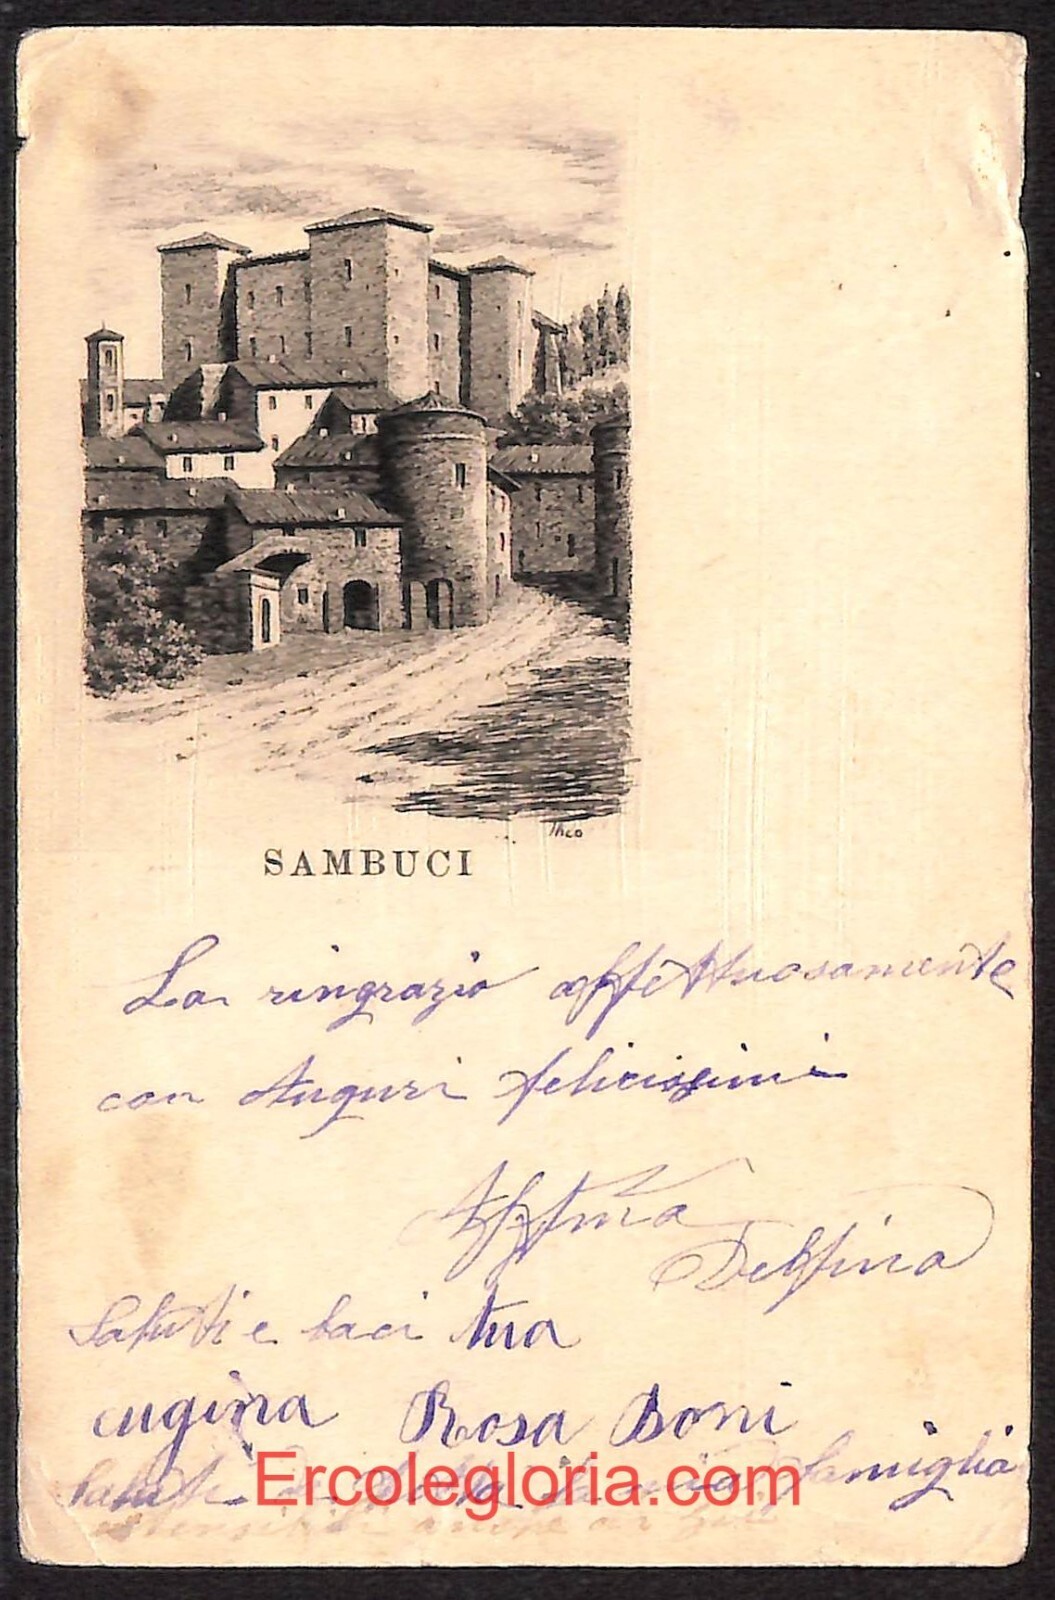 Theo
SAMBUCI
La ringrazio affettuosamente
con Auguri felicissimi
Affma
Delfina
Saluti e baci tua
cugina Rosa Boni
Saluti di tutta la mia famiglia
estensibili anche ai zii
Ercolegloria.com